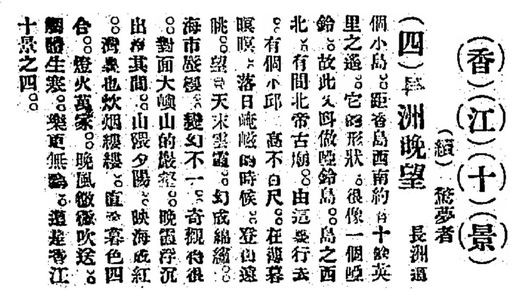 (香)(江)(十)(景)
(續) 驚夢者
(四)長洲晚望 長洲這
個小島。距香島西南約有十餘英
里之遙。它的形狀。很像一個啞
鈴。故此又叫做啞鈴島。島之西
北。有間北帝古廟。由這裏行去
。有個小邱。高不百尺。在薄暮
暝暝。落日崦嵫的時候。登山遠
眺。望着天末雲霞。幻成。
海市蜃樓。變幻不一。奇觀得很
。對面大嶼山的巖壑。晚靄浮沉
出沒其間。山環夕陽。映海成紅
。灣裏也炊烟縷縷。直至暮色四
合。燈火萬家。晚風微微吹送。
生寒。樂更無。這是香江
十景之四。